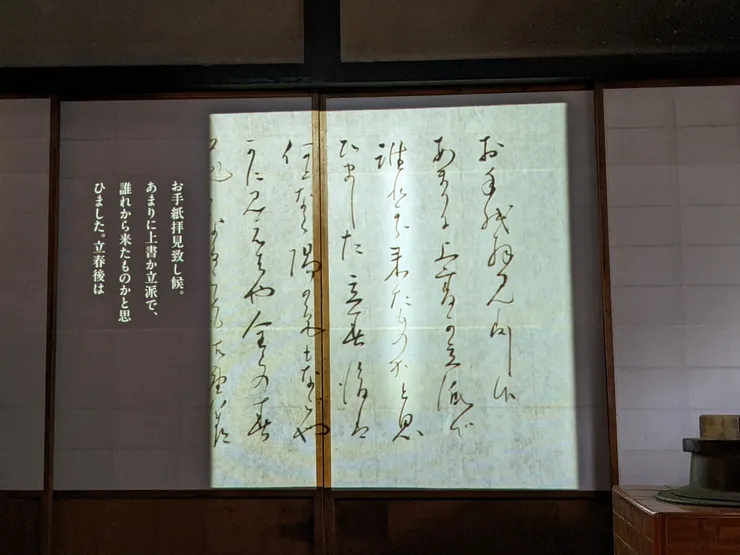 お手紙拝見致し候
あまりに上書か立派で
誰れから来たものかと思
ひました立春後は
何となく陽の光もなごや
かに見え
全くの春
お手紙拝見致し候。
あまりに上書か立派で、
誰れから来たものかと思
ひました。立春後は